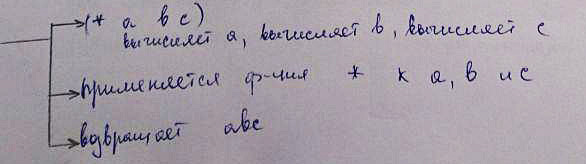 (* a b c)
вычисляет a, вычисляет b, вычисляет c
применяется ф-ция * к a, b и c
возвращает abc